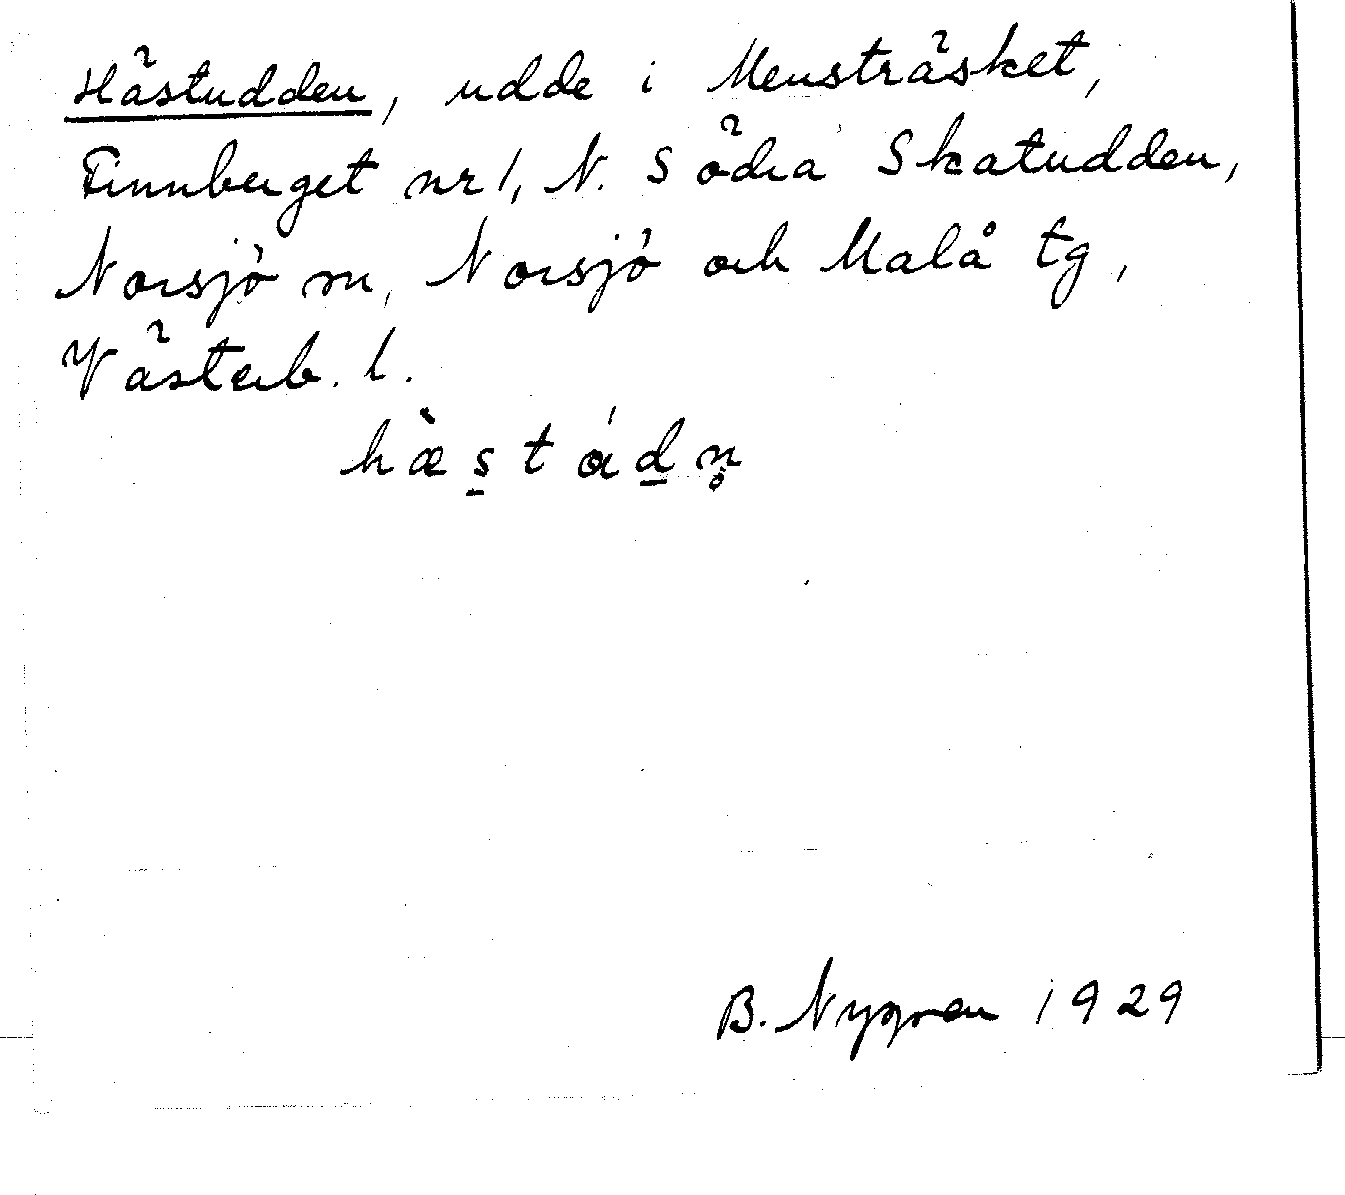 Hästudden, udde i Mensträsket,
Finnberget nr 1, N. Södra Skatudden,
Norsjö sn, Norsjö och Malå tg,
Västerb. l.
hæ̀s̠tád̠n̥
B. Nygren 1929